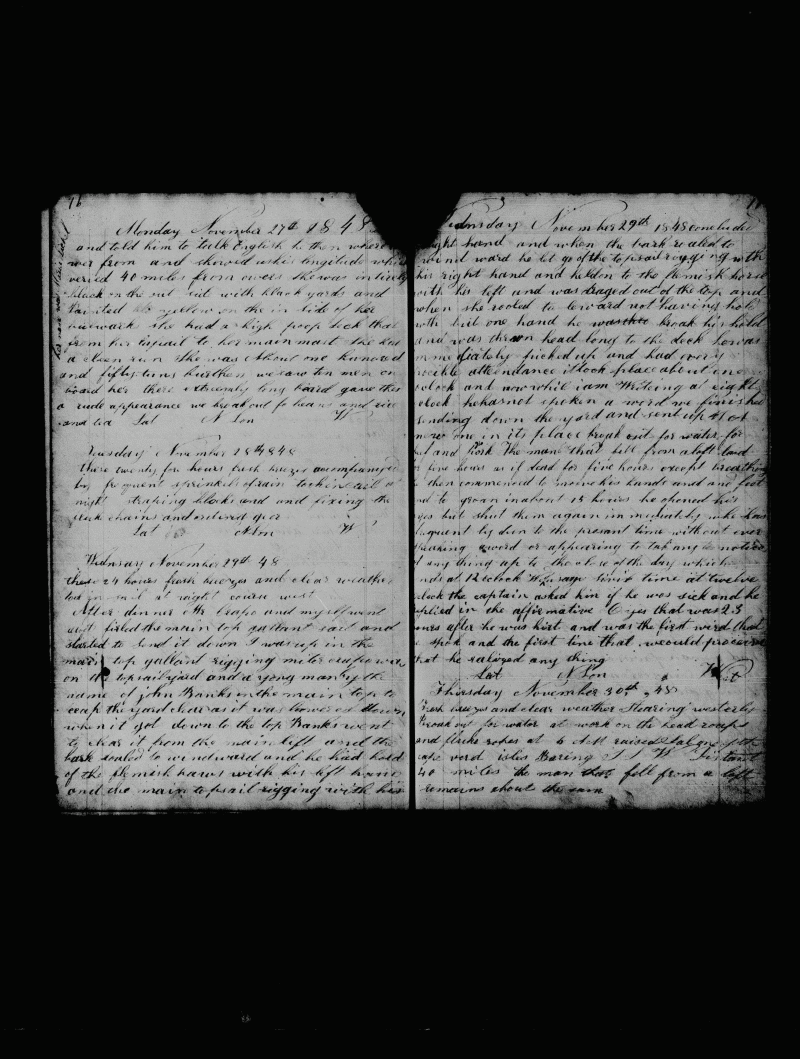 76
Monday November 27th 1848
and told him to talk English to then where
was from and showed us his longitude which
veried 40 miles from owers she was intierly
black on the out cut with black yards and
Painted yellow on the in side of her
bulwark she had a high poop deck that
from her to her main mast she had
a clean run she was about one hundred
and fifty tuns burthen we saw ten men on
board her there extreemly long beard gave them
a rude appearance we break out for beans and rice
and tea Lat N Lon W
Tuesday November 28th 1848
these twenty for hours fresh breezes accomphanyed
by frequent sprinkels of rain took in sail at
night straping blocks and and fixing the
chains and
Lat N Lon W
Wednsday November 29th 48
these 24 hours fresh breezes and clear weather
took in sail at night course west
After dinner Mr Crapo and myself went
and firled the main top gallant sail and
started to send it down I was up in the
main top gallant rigging mister crapo was
on the topsail yard and a yong man by the
name of john Banks on the main top to
ceap the yard clear as it was lowered down
when it got down to the top Banks went
to clear it from the main lift and the
bark rooled to windward and he had hold
of the flemish hors with his left hand
and the main topsail rigging with his
77
Wednsday November 29th 1848 concluded
right hand and when the bark rooled to
wind ward he let go of the topsail rigging with
his right hand and helt on to the flemish horse
with his left and was draged out of the top and
when she rooled to leward not having hold
with but one hand he broak his hold
and was thrown head long to the deck he was
immediately picked up and had every
attendance it took place about one
oclock and now while i am Writeing at eight
oclock he has not spoken a word we finished
sending down the yard and sent up
new one in its place break out for water for
and Pork The man that fell from aloft laid
five hours as if dead for five hours except breathing
then commenced to move his hands and and feet
and to groan in about 15 hours he opened his
eyes but shut them again immediately
by doon to the present time without ever
speaking a word or appearing to tak any notice
of any thing up to the close of the day which
ends at 12 oclock time at twelve
oclock the captain asked him if he was sick and he
replied in the affirmative O yes that was 23
ours after he was hirt and was the first word that
he spok and the first time that we could proceive
that he realized any thing
Lat N Lon West
Thursday November 30th 48
Fresh breezes and clear weather Stearing westerly
Break out for water at work on the head roaps
and at 6 AM raised of the
cape verd isles Baring S W Distant
40 miles the man that fell from a loft
remains about the sam